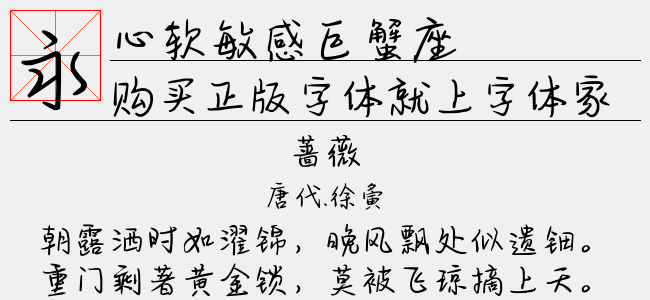 永
心软敏感巨蟹座
购买正版字体就上字体家
蔷薇
唐代.徐夤
朝露洒时如濯锦，晚风飘处似遗钿。
重门剩著黄金锁，莫被飞琼摘上天。